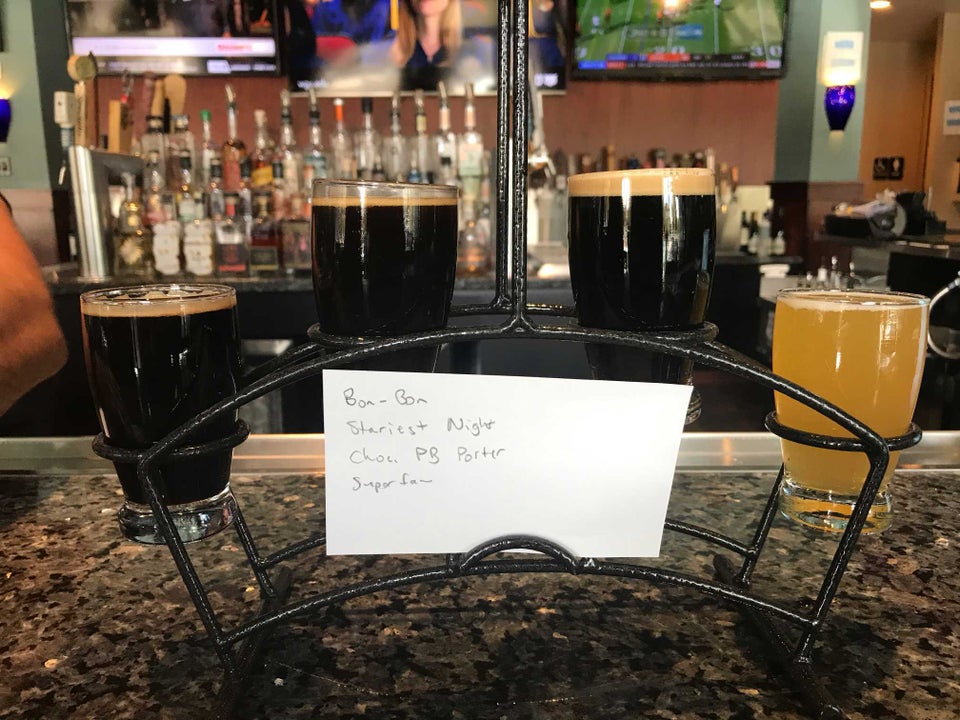 Bon-Bon
Stariest Night
Choc. PB Porter
Superfan